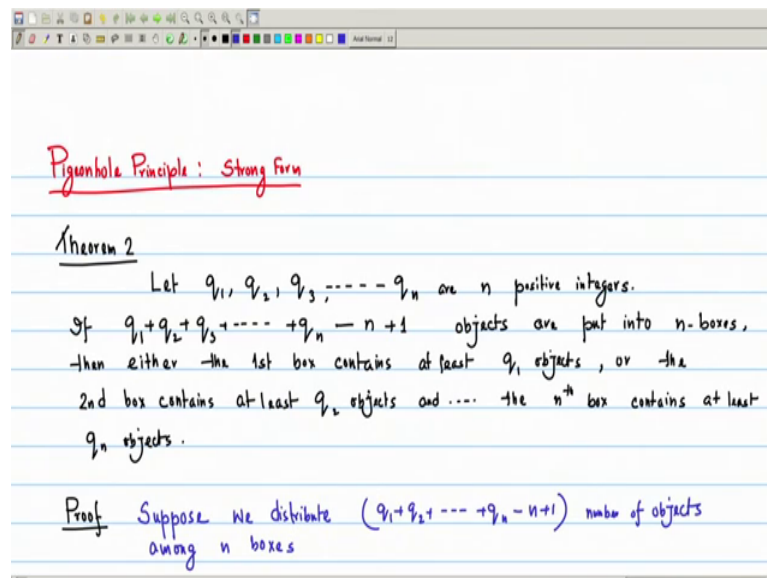 Arial Normal 12
Pigeonhole Principle : Strong Form
Theorem 2
Let q₁, q₂, q₃, ----- qₙ are n positive integers.
If q₁+q₂+q₃+---- +qₙ — n+1 objects are put into n-boxes,
then either the 1st box contains at least q₁ objects, or the
2nd box contains at least q₂ objects and .... the nᵗʰ box contains at least
qₙ objects.
Proof Suppose we distribute (q₁+q₂+ --- +qₙ - n+1) number of objects
among n boxes